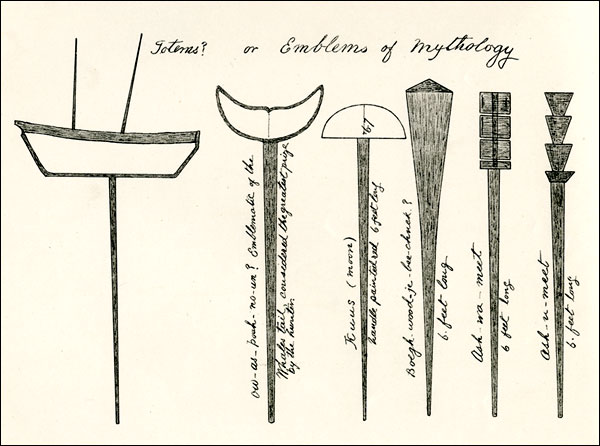 Totems? or Emblems of Mythology
Ow-as-posh-no-un? Emblematic of the
Whales tail, considered the greatest prize
by the hunter.
67
Kuus (moon)
handle painted red 6 feet long
Boegh-wood-je-bee-chnek?
6 feet long
Ash-wa-meet
6 feet long
Ash-u-meet
6 feet long